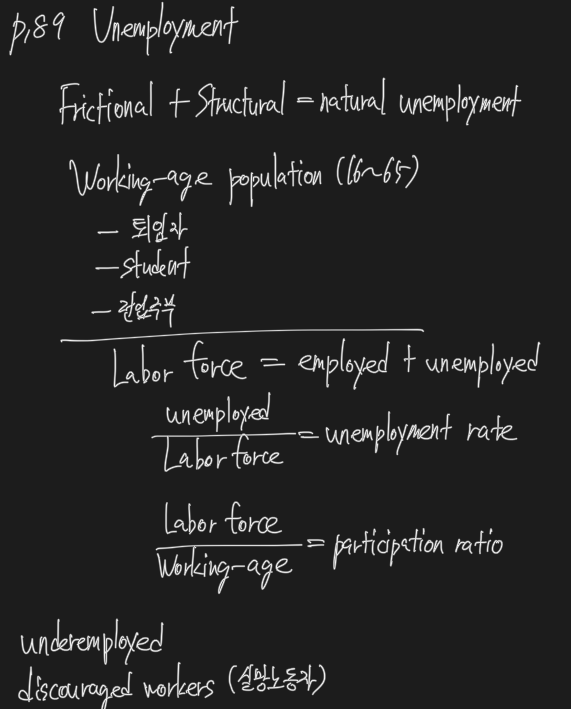 p.89 Unemployment
Frictional + Structural = natural unemployment
Working-age population (16~65)
- 퇴임자
- student
- 전업주부
Labor force = employed + unemployed
unemployed
Labor force
= unemployment rate
Labor force
Working-age
= participation ratio
underemployed
discouraged workers (실망노동자)